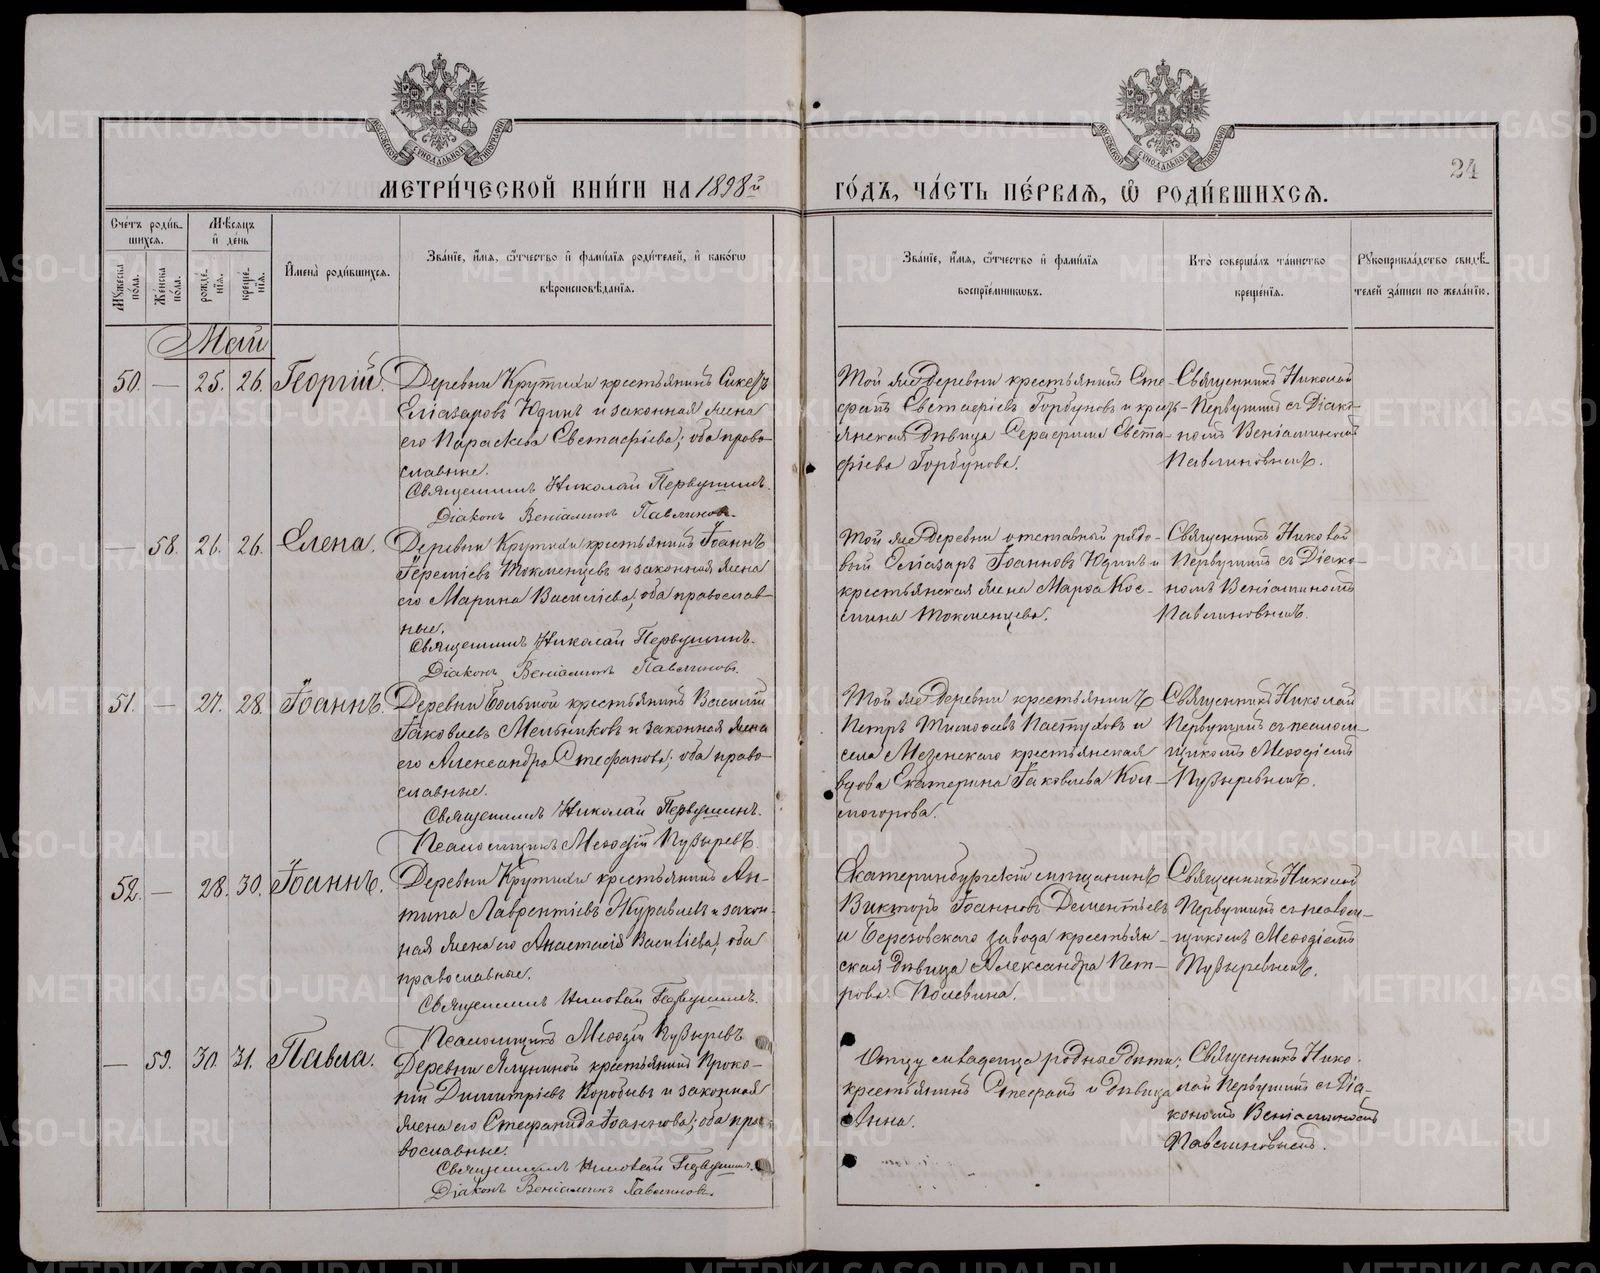 МЕТРИ́ЧЕСКОЙ КНИ́ГИ НА 1898й
ГО́ДЪ, ЧА́СТЬ ПЕ́РВАЯ, Ѽ РОДИ́ВШИХСЯ.
24
Сче́тъ роди́в-
шихся.
Мѣ́сяцъ
и҆ де́нь
Мꙋ́жеска по́ла.
Же́нска по́ла.
рожде́-
нїя.
креще́-
нїя.
И҆мена̀ роди́вшихся.
Зва́нїе, и҆́мя, ѻ҆́тчество и҆ фами́лїя роди́телей, и҆ како́гѡ
вѣроисповѣ́данїя.
Зва́нїе, и҆́мя, ѻ҆́тчество и҆ фами́лїя
воспрїе́мниковъ.
Кто̀ соверша́лъ та́инство
креще́нїя.
Рꙋкоприкла́дство свидѣ́-
телей за́писи по жела́нїю.
Май
50. — 25. 26. Георгій.
Деревни Крутихи крестьянинъ
Еліазаровъ Юдинъ и законная жена
его Параскева Евстафіева; оба право-
славные.
Священникъ Николай Первушинъ.
Діаконъ Веніаминъ Павлиновъ.
Той же деревни крестьянинъ Сте-
фанъ Евстафіевъ Горбуновъ и кресть-
янская дѣвица Серафима Евста-
фіева Горбунова.
Священникъ Николай
Первушинъ съ Діако-
номъ Веніаминомъ
Павлиновымъ.
— 58. 26. 26. Елена.
Деревни Крутихи крестьянинъ Іоаннъ
Іереміевъ Токменцевъ и законная жена
его Марина Василіева, оба православ-
ные.
Священникъ Николай Первушинъ.
Діаконъ Веніаминъ Павлиновъ.
Той же деревни отставной рядо-
вой Еліазаръ Іоанновъ Юдинъ и
крестьянская жена Марѳа Кос-
мина Токменцева.
Священникъ Николай
Первушинъ съ Діако-
номъ Веніаминомъ
Павлиновымъ.
51. — 27. 28. Іоаннъ.
Деревни Большой крестьянинъ Василій
Іаковлевъ Мельниковъ и законная жена
его Александра Стефанова; оба право-
славные.
Священникъ Николай Первушинъ.
Псаломщикъ Меѳодій Пузыревъ.
Той же деревни крестьянинъ
Петръ Тимоѳеевъ Пастуховъ и
села Мезенскаго крестьянская
вдова Екатерина Іаковлева Кол-
могорова.
Священникъ Николай
Первушинъ съ псалом-
щикомъ Меѳодіемъ
Пузыревымъ.
52. — 28. 30. Іоаннъ.
Деревни Крутихи крестьянинъ Ан-
типа Лаврентіевъ Журавлевъ и закон-
ная жена его Анастасія Василіева, оба
православные.
Священникъ Николай Первушинъ.
Псаломщикъ Меѳодій Пузыревъ
Екатеринбургскій мѣщанинъ
Викторъ Іоанновъ Дементьевъ
и Березовскаго завода крестьян-
ская дѣвица Александра Пет-
рова Полевина.
Священникъ Николай
Первушинъ съ псалом-
щикомъ Меѳодіемъ
Пузыревымъ.
— 59. 30. 31. Павла.
Деревни Ялуниной крестьянинъ Проко-
пій Димитріевъ Воробьевъ и законная
жена его Стефанида Іоаннова; оба пра-
вославные.
Священникъ Николай Первушинъ.
Діаконъ Веніаминъ Павлиновъ.
Отцу младенца родные дѣти:
крестьянинъ Стефанъ и дѣвица
Анна.
Священникъ Нико-
лай Первушинъ съ Діа-
кономъ Веніаминомъ
Павлиновымъ.
METRIKI.GASO-URAL.RU